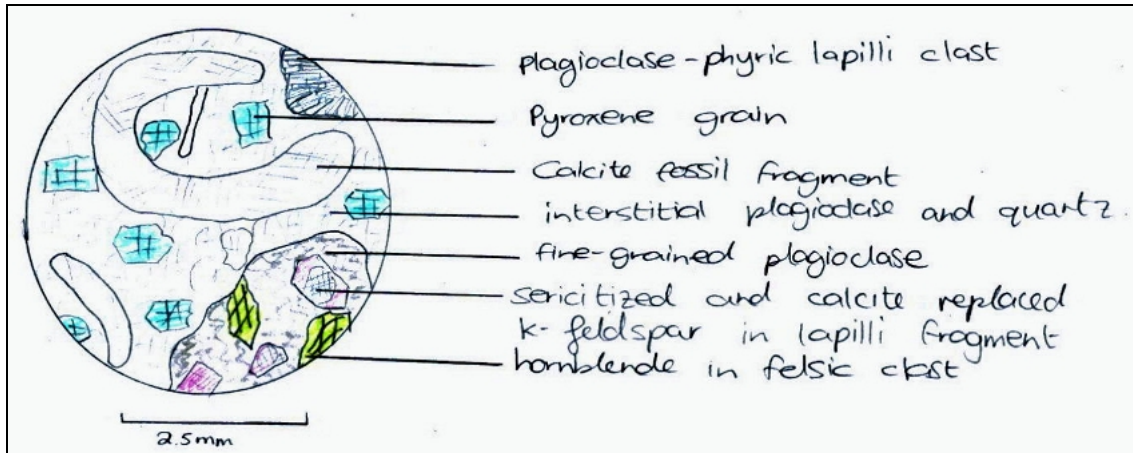 plagioclase-phyric lapilli clast
Pyroxene grain
Calcite fossil fragment
interstitial plagioclase and quartz.
fine-grained plagioclase
sericitized and calcite replaced
k-feldspar in lapilli fragment
hornblende in felsic clast
2.5mm